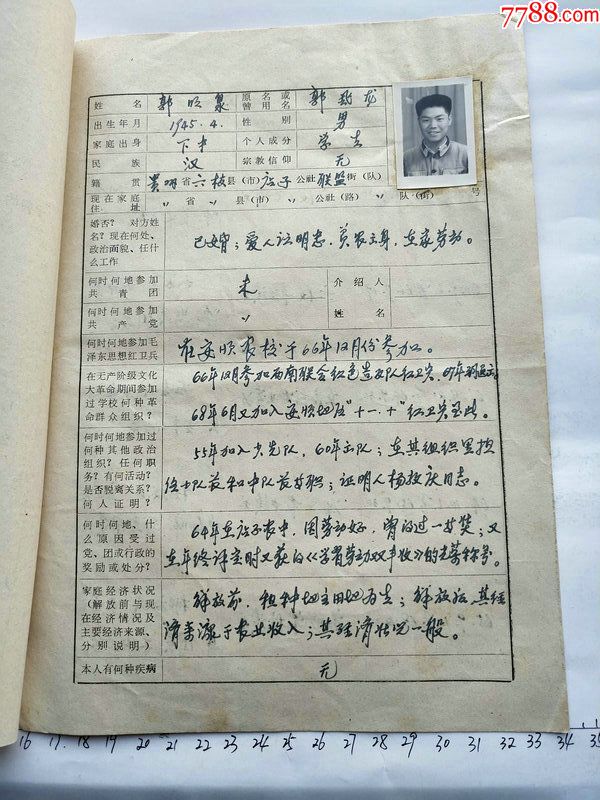 7788.com
姓 名 郭 原名或曾用名 郭 龙
出生年月 1945.4. 性别 男
家庭出身 下中 个人成分 学生
民族 汉 宗教信仰 无
籍贯 贵州省六枝县(市)店子公社联盟街(队)
现在家庭住址 〃省〃县(市)〃公社(路)〃队(街) 号
婚否? 对方姓名?现在何处、政治面貌、任什么工作
已婚;爱人 明志,贫农出身,在家劳动。
何时何地参加共青团 未 介绍人姓名
何时何地参加共产党 〃
何时何地参加毛泽东思想红卫兵 在安顺农校于66年12月份参加。
在无产阶级文化大革命期间参加过学校何种革命群众组织?
66年12月参加西南联合红色造反队红卫兵,67年
68年6月又加入安顺地区“十一·十”红卫兵至此。
何时何地参加过何种其他政治组织?任何职务?有何活动?是否脱离关系?何人证明?
55年加入少先队,60年出队;在其组织里担
任小队长和中队长等职;证明人杨 庆同志。
何时何地、什么原因受过党、团或行政的奖励或处分?
64年在店子农中,因劳动好,曾得过一等奖;又
在年终评定时又获得《学习劳动双丰收》的光荣称号。
家庭经济状况(解放前与现在经济情况及主要经济来源、分别说明)
解放前,租种地主田地为生;解放后,其经
济来源于农业收入;其经济状况一般。
本人有何种疾病 无
16 17 18 19 20 21 22 23 24 25 26 27 28 29 30 31 32 33 34 35